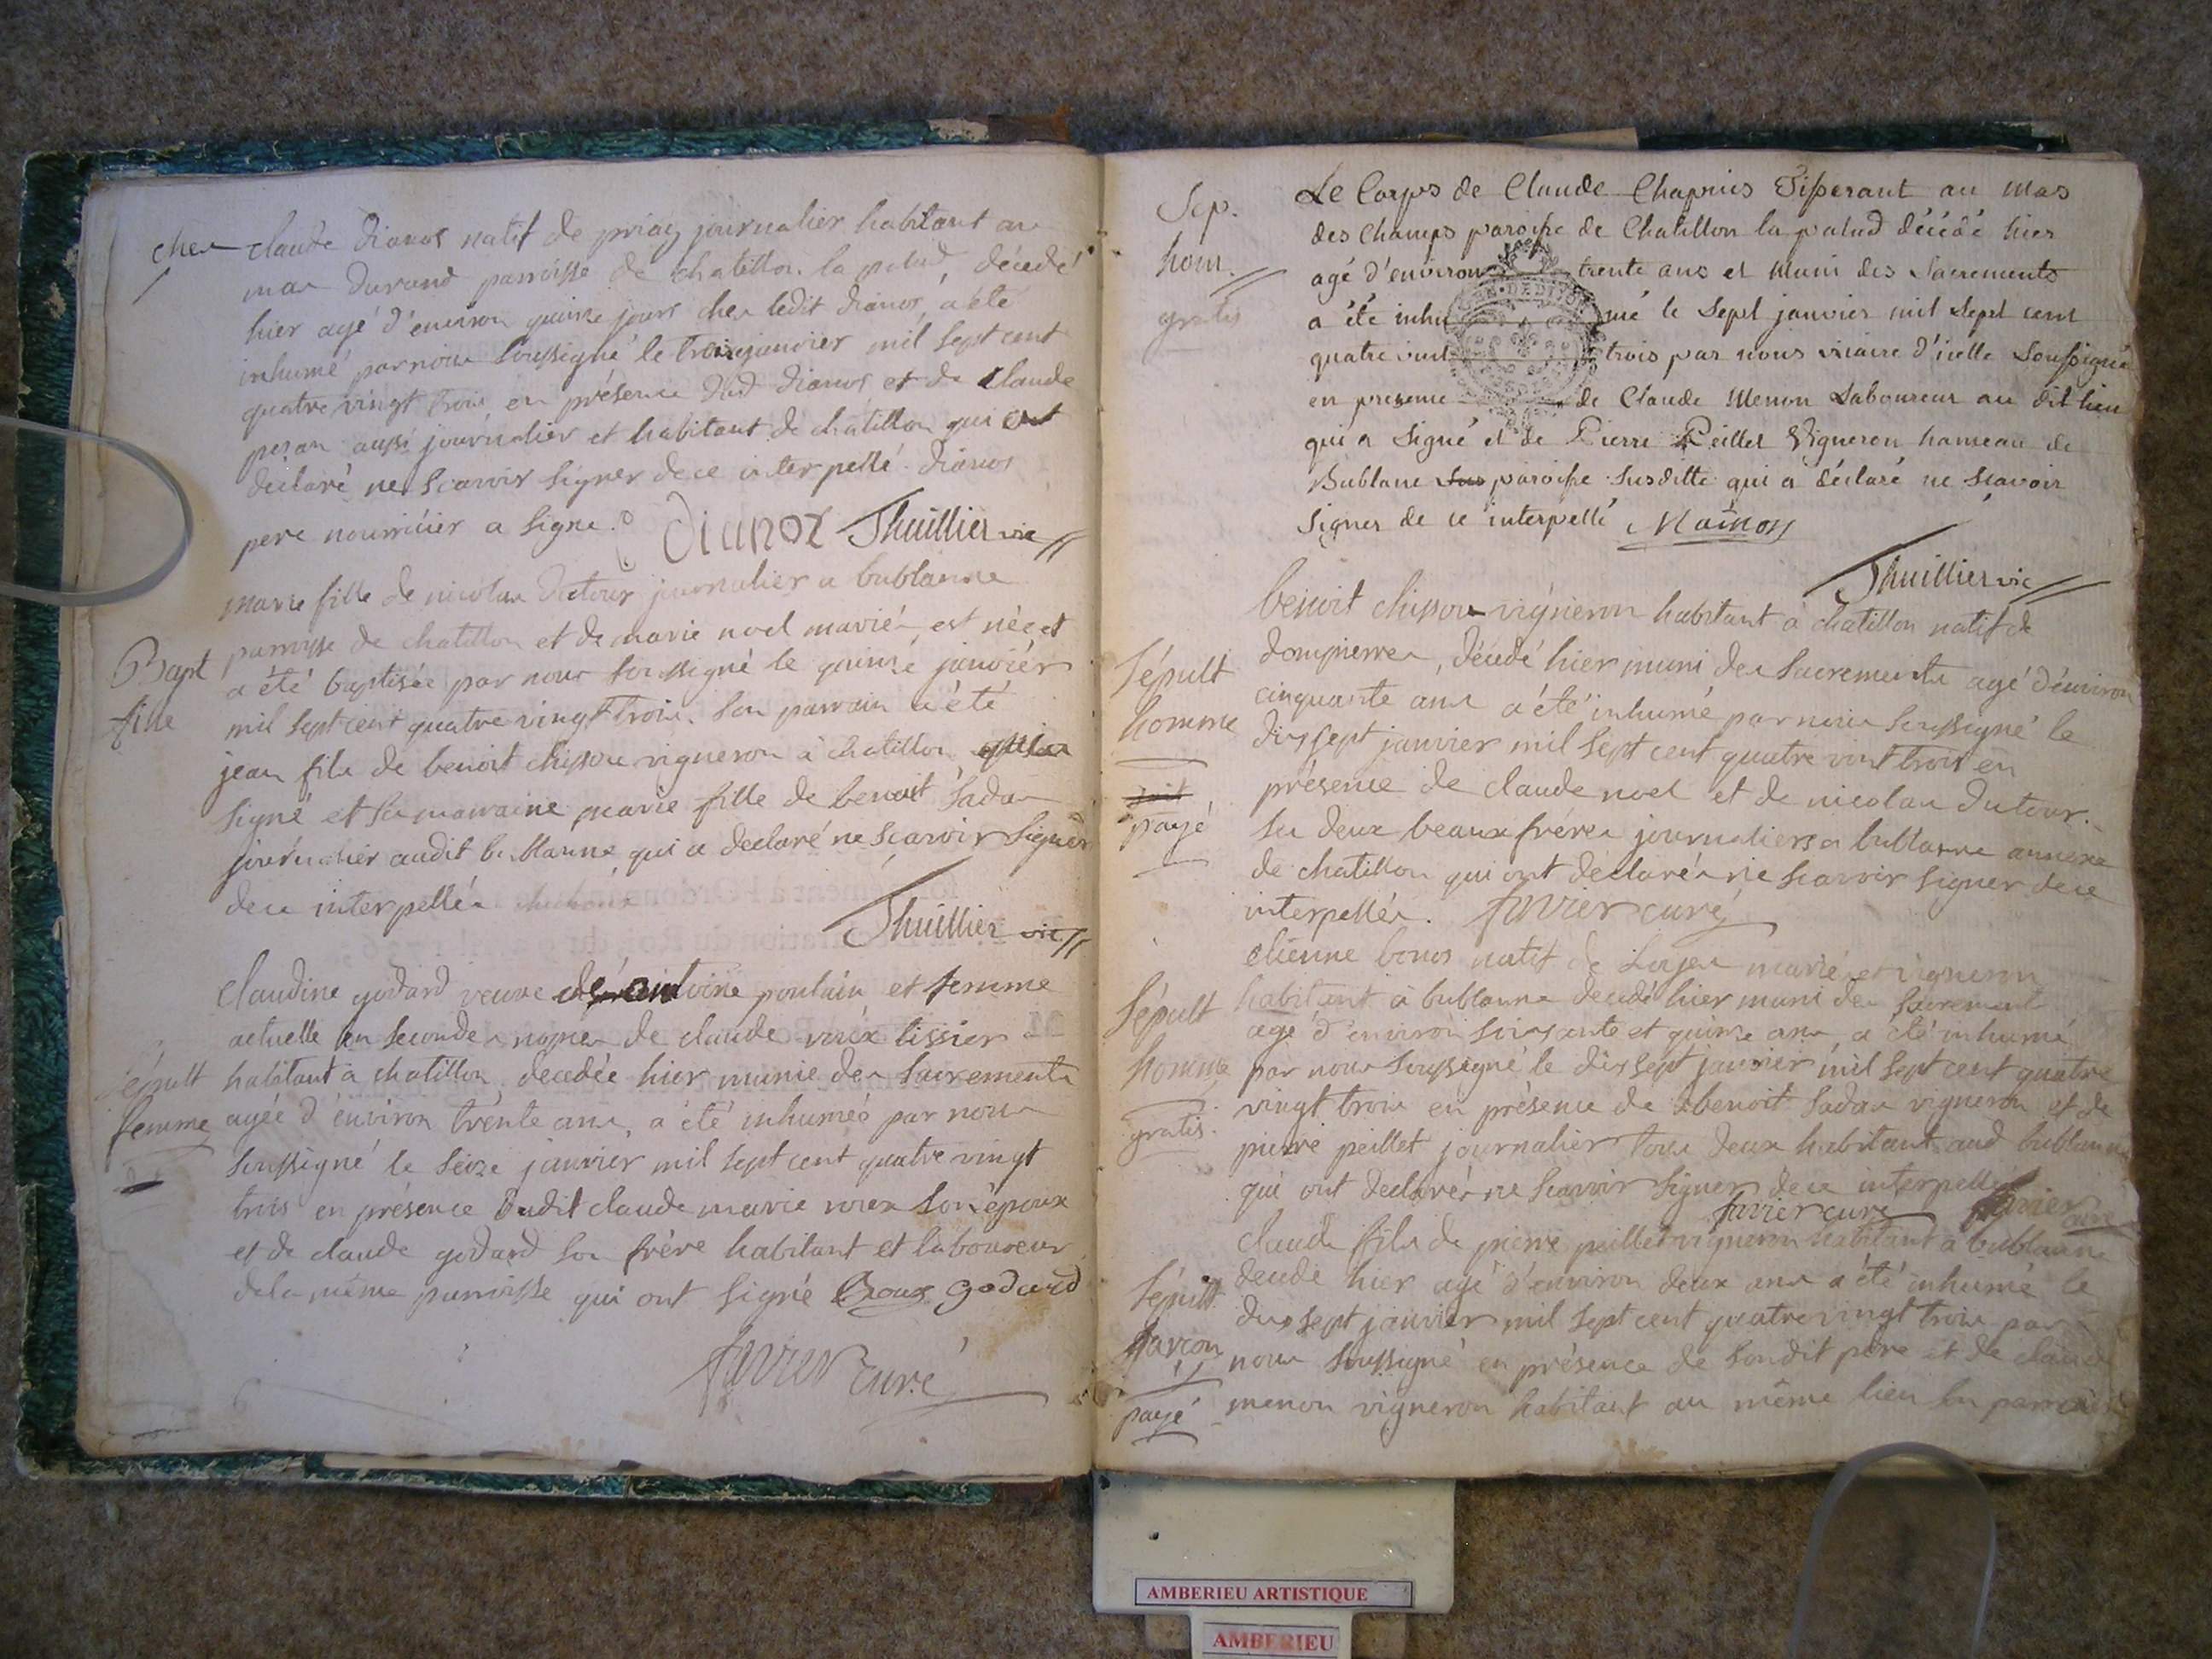 chez claude dianos natif de priay journalier habitant au
mas durand parroisse de chatillon la palud, décedé
hier agé d'environ quinze jours chez ledit dianos, a été
inhumé par nous soussigné le trois janvier mil sept cent
quatre vingt trois en présence dud dianos et de claude
peran aussi journalier et habitant de chatillon qui ont
déclaré ne scavoir signer de ce interpellé. dianos
pere nourricier a signé. Dianoz Thuillier vic
Bapt
fille
marie fille de nicolas dutour journalier a bublanne
parroisse de chatillon et de marie noel mariés, est née et
a été baptisée par nous soussigné le quinze janvier
mil sept cent quatre vingt trois. son parrain a été
jean fils de benoit chipou vigneron à chatillon
signé et sa marraine marie fille de benoit sadan
journalier audit bublanne qui a declaré ne scavoir signer
de ce interpellés
Thuillier vic
sépult
femme
claudine godard veuve antoine poulain et femme
actuelle en secondes nopces de claude roux tissier
habitant à chatillon, decedée hier munie des sacrements
agée d'environ trente ans, a été inhumée par nous
soussigné le seize janvier mil sept cent quatre vingt
trois en présence dudit claude marie roux son époux
et de claude godard son frère habitant et laboureur
de la même parroisse qui ont signé Roux godard
favier curé
Sep.
hom.
gratis
Le Corps de Claude Chapuis Tisserant au Mas
des Champs paroisse de Chatillon la palud décédé hier
agé d'environ trente ans et muni des Sacrements
a été inhumé le Sept janvier mil Sept cent
quatre vint trois par nous vicaire d'icelle Soussigné
en presence de Claude Menon Laboureur au dit lieu
qui a Signé et de Pierre Peillet Vigneron hameau de
Bublane paroisse Susditte qui a déclaré ne Scavoir
Signer de ce interpellé Mainon
Thuillier vic
Sépult
homme
payé
benoit chipou vigneron habitant à chatillon natif de
dompierre, décedé hier muni des sacrements agé d'environ
cinquante ans a été inhumé par nous soussigné le
dix sept janvier mil sept cent quatre vint trois en
présence de claude noel et de nicolas dutour
ses deux beaux fréres journaliers a bublanne annexe
de chatillon qui ont déclarés ne scavoir signer de ce
interpellés. favier curé
Sépult
homme
gratis
etienne bonos natif de marié et vigneron
habitant à bublanne decedé hier muni des sacrements
agé d'environ soixante et quinze ans, a été inhumé
par nous soussigné le dix sept janvier mil sept cent quatre
vingt trois en présence de benoit sadan vigneron et de
pierre peillet journalier tous deux habitant aud bublanne
qui ont declarés ne scavoir signer de ce interpellés
favier curé favier curé
Sépult
Garcon
payé
claude fils de pierre peillet vigneron habitant à bublanne
decedé hier agé d'environ deux ans a été inhumé le
dix sept janvier mil sept cent quatre vingt trois par
nous soussigné en présence de sondit père et de claude
menon vigneron habitant au même lieu son parrain
AMBERIEU ARTISTIQUE
AMBERIEU